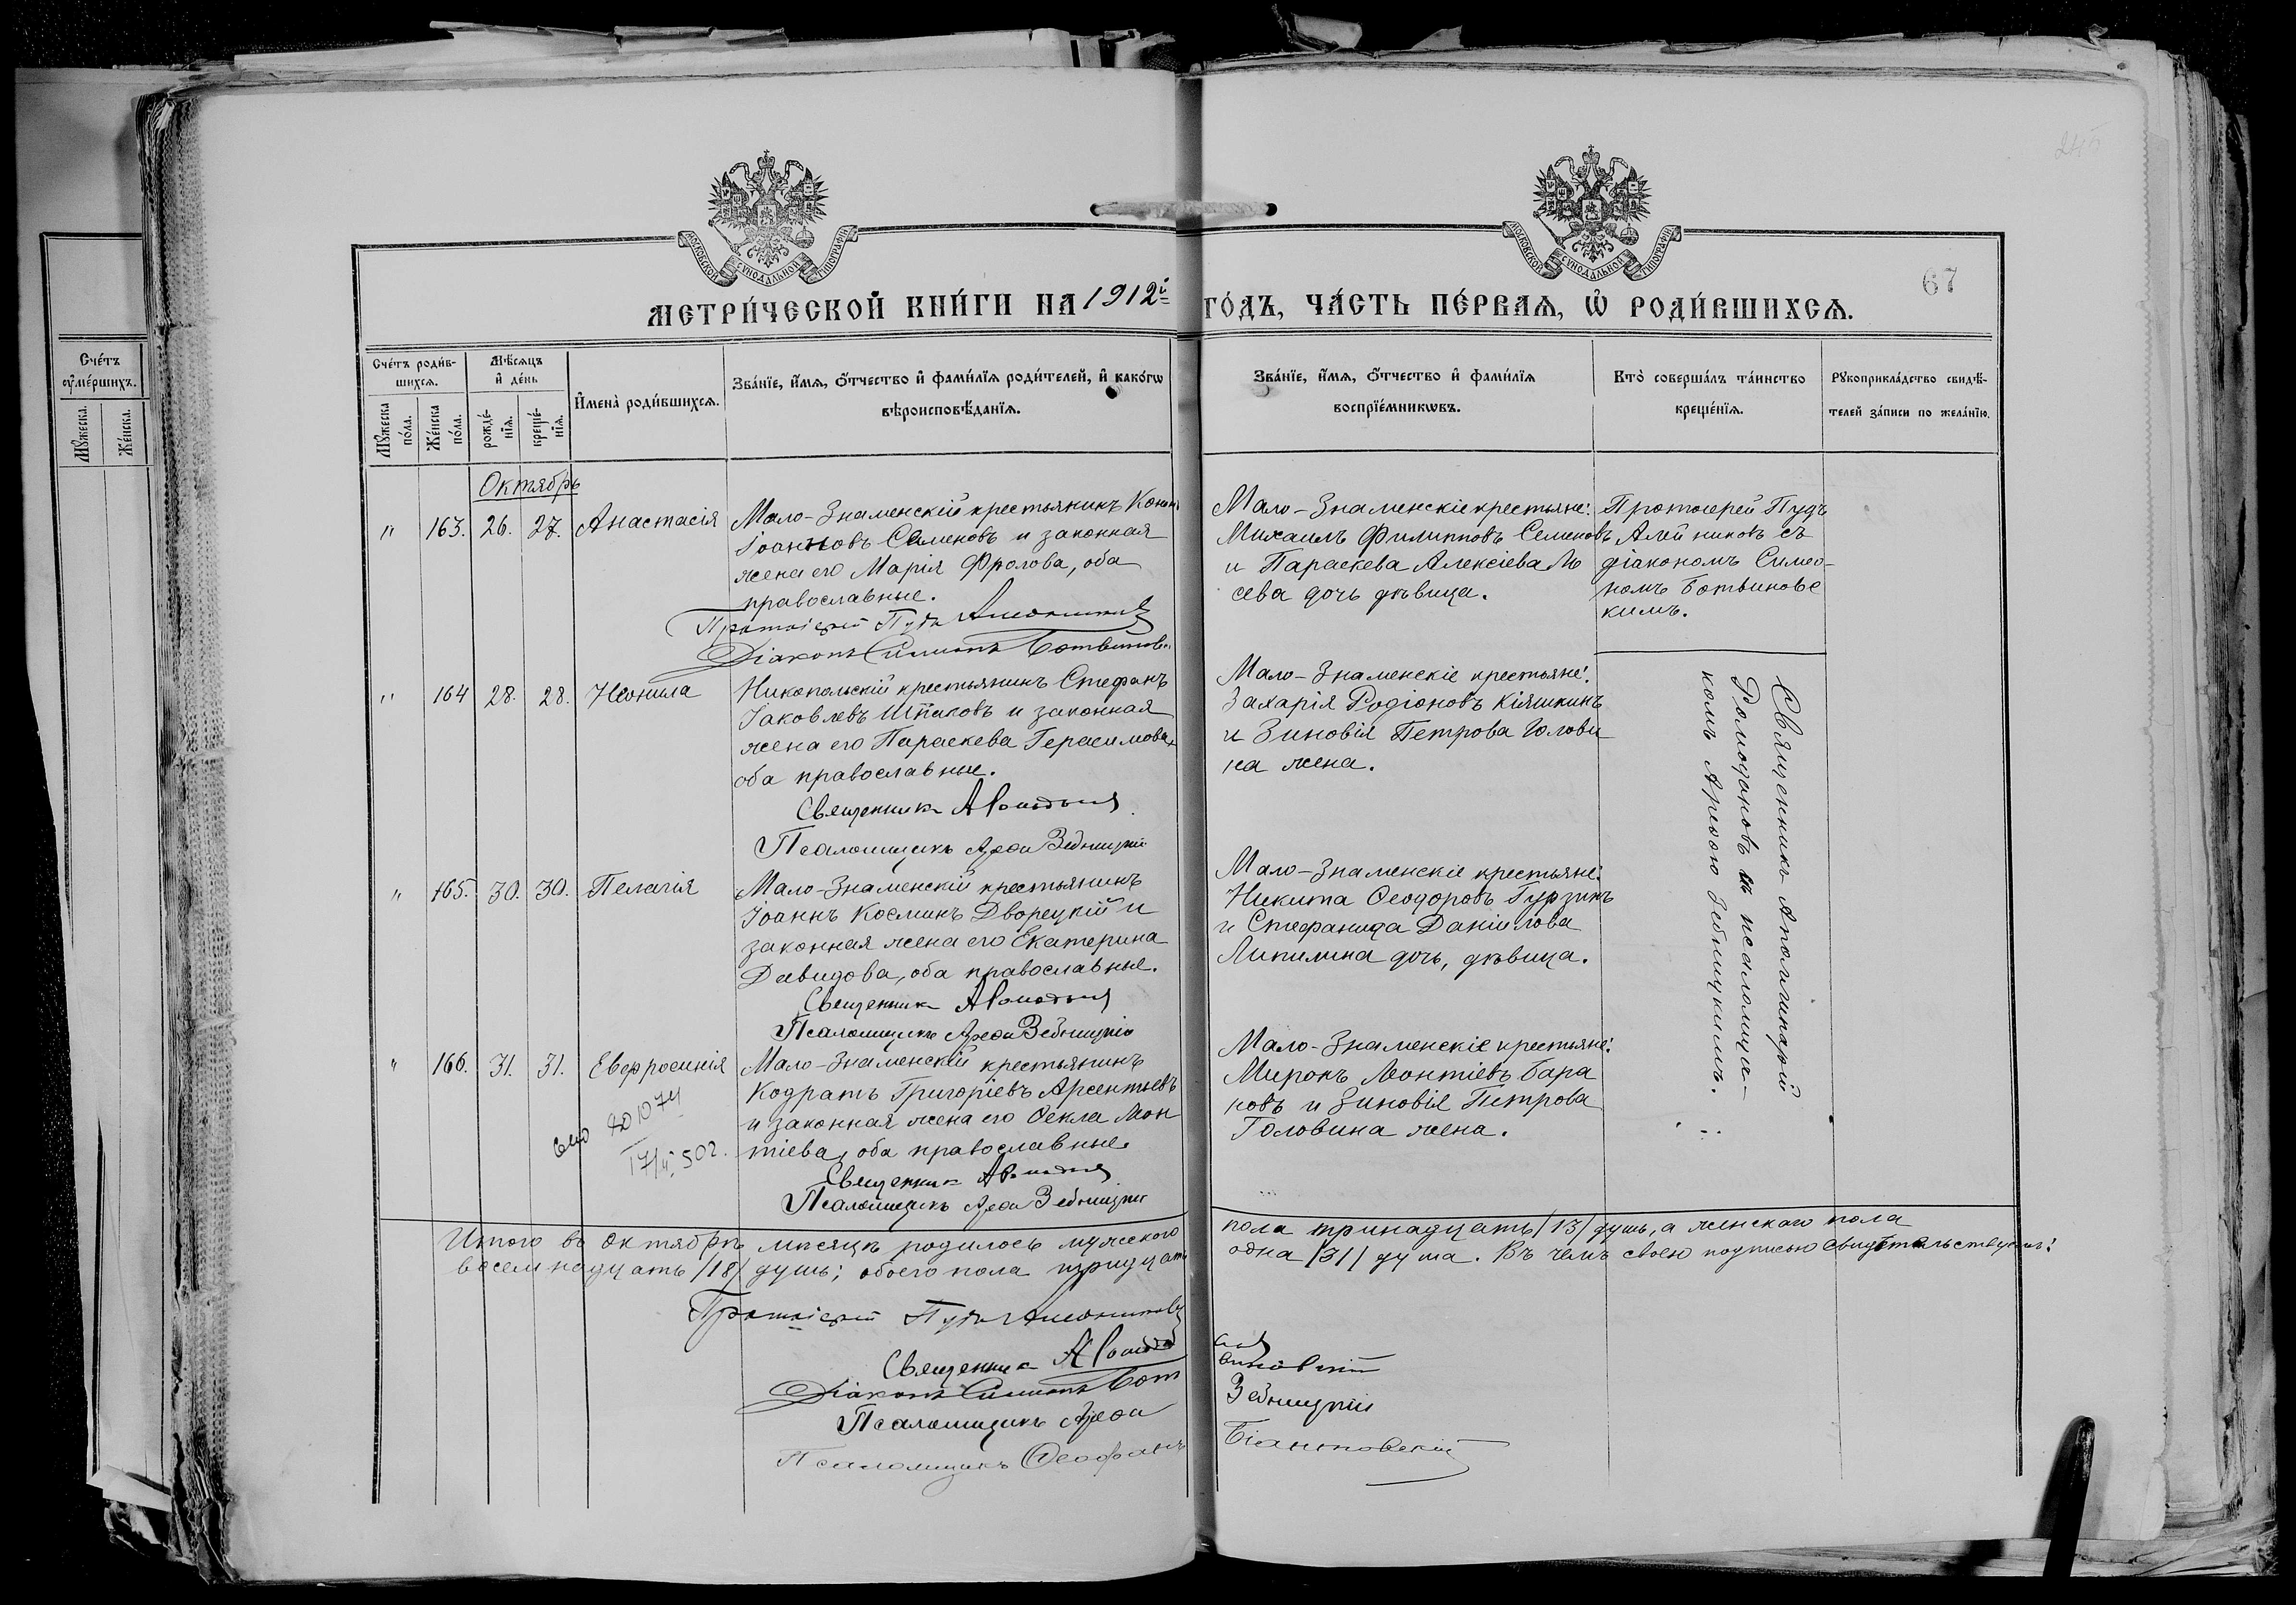 Счётъ
ᲂумéршихъ.
Мꙋжеска.
Жéнска.
МОСКОВСКОЙ СУНОДАЛЬНОЙ ТИПОГРАФІИ
МОСКОВСКОЙ СУНОДАЛЬНОЙ ТИПОГРАФІИ
67
МЕТРИ́ЧЕСКОЙ КНИ́ГИ НА 1912й ГО́ДЪ, ЧА́СТЬ ПЕ́РВАЯ, Ѡ РОДИ́ВШИХСЯ.
Счéтъ роди́в-
шихся.
Мꙋжеска пóла.
Жéнска пóла.
Мѣсяцъ
и дéнь
рождé-
нїя.
крещé-
нїя.
Имена̀ роди́вшихся.
Звáнїе, и́мя, ѻ́тчество и фами́лїя роди́телей, и какóгѡ
вѣроисповѣ́данїя.
Звáнїе, и́мя, ѻ́тчество и фами́лїя
воспрїéмникѡвъ.
Кто̀ совершáлъ тáинство
крещéнїя.
Рꙋкоприклáдство свидѣ́-
телей зáписи по желáнїю.
Октябрь
" 163. 26. 27. Анастасія
Мало-Знаменскій крестьянинъ Конон
Іоанновъ Семеновъ и законная
жена его Марія Фролова, оба
православные.
Протоіерей Пудъ Алейниковъ
Діаконъ Симеонъ Ботвиновс
Мало-Знаменскіе крестьяне:
Михаилъ Филипповъ Семеновъ
и Параскева Алексіева Мо
сева дочь дѣвица.
Протоіерей Пудъ
Алейниковъ съ
діакономъ Симео-
номъ Ботвиновс
кимъ.
" 164 28. 28. Неонила
Никопольскій крестьянинъ Стефанъ
Іаковлевъ Шпаковъ и законная
жена его Параскева Герасимова,
оба православные.
Священникъ А Ромодановъ
Псаломщикъ Арефа Зебницкій
Мало-Знаменскіе крестьяне:
Захарія Родіоновъ Кіяшкинъ
и Зиновія Петрова Голови
на жена.
Священникъ Аполлинарій
Ромодановъ съ псаломщи-
комъ Арефою Зебницкимъ.
" 165. 30. 30. Пелагія
Мало-Знаменскій крестьянинъ
Іоаннъ Косминъ Дворецкій и
законная жена его Екатерина
Давидова, оба православные.
Священникъ А Ромодановъ
Псаломщикъ Арефа Зебницкій
Мало-Знаменскіе крестьяне:
Никита Ѳеодоровъ Гурзинъ
и Стефанида Даніилова
Липилина дочь, дѣвица.
" 166. 31. 31. Евфросинія
Мало-Знаменскій крестьянинъ
Кодратъ Григоріевъ Арсентьевъ
и законная жена его Ѳекла Леон
тіева, оба православные.
Священникъ А Ромодановъ
Псаломщикъ Арефа Зебницкій
Мало-Знаменскіе крестьяне:
Миронъ Леонтіевъ Бара
новъ и Зиновія Петрова
Головина жена.
Итого въ октябрѣ мѣсяцѣ родилось мужеского пола тринадцать /13/ душъ, а женскаго пола
восемнадцать /18/ душъ; обоего пола тридцать одна /31/ душа. Въ чемъ своею подписью свидѣтельствуемъ:
Протоіерей Пудъ Алейниковъ
Священникъ А Ромодановъ
Діаконъ Симеонъ Ботвиновскій
Псаломщикъ Арефа Зебницкій
Псаломщикъ Ѳеофанъ Біантовскій